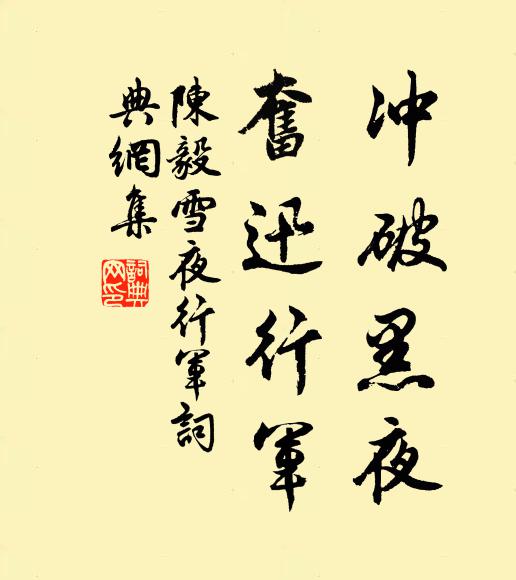 冲破黑夜
奮迅行軍
陳毅雪夜行軍詞
典網集
詞典网印